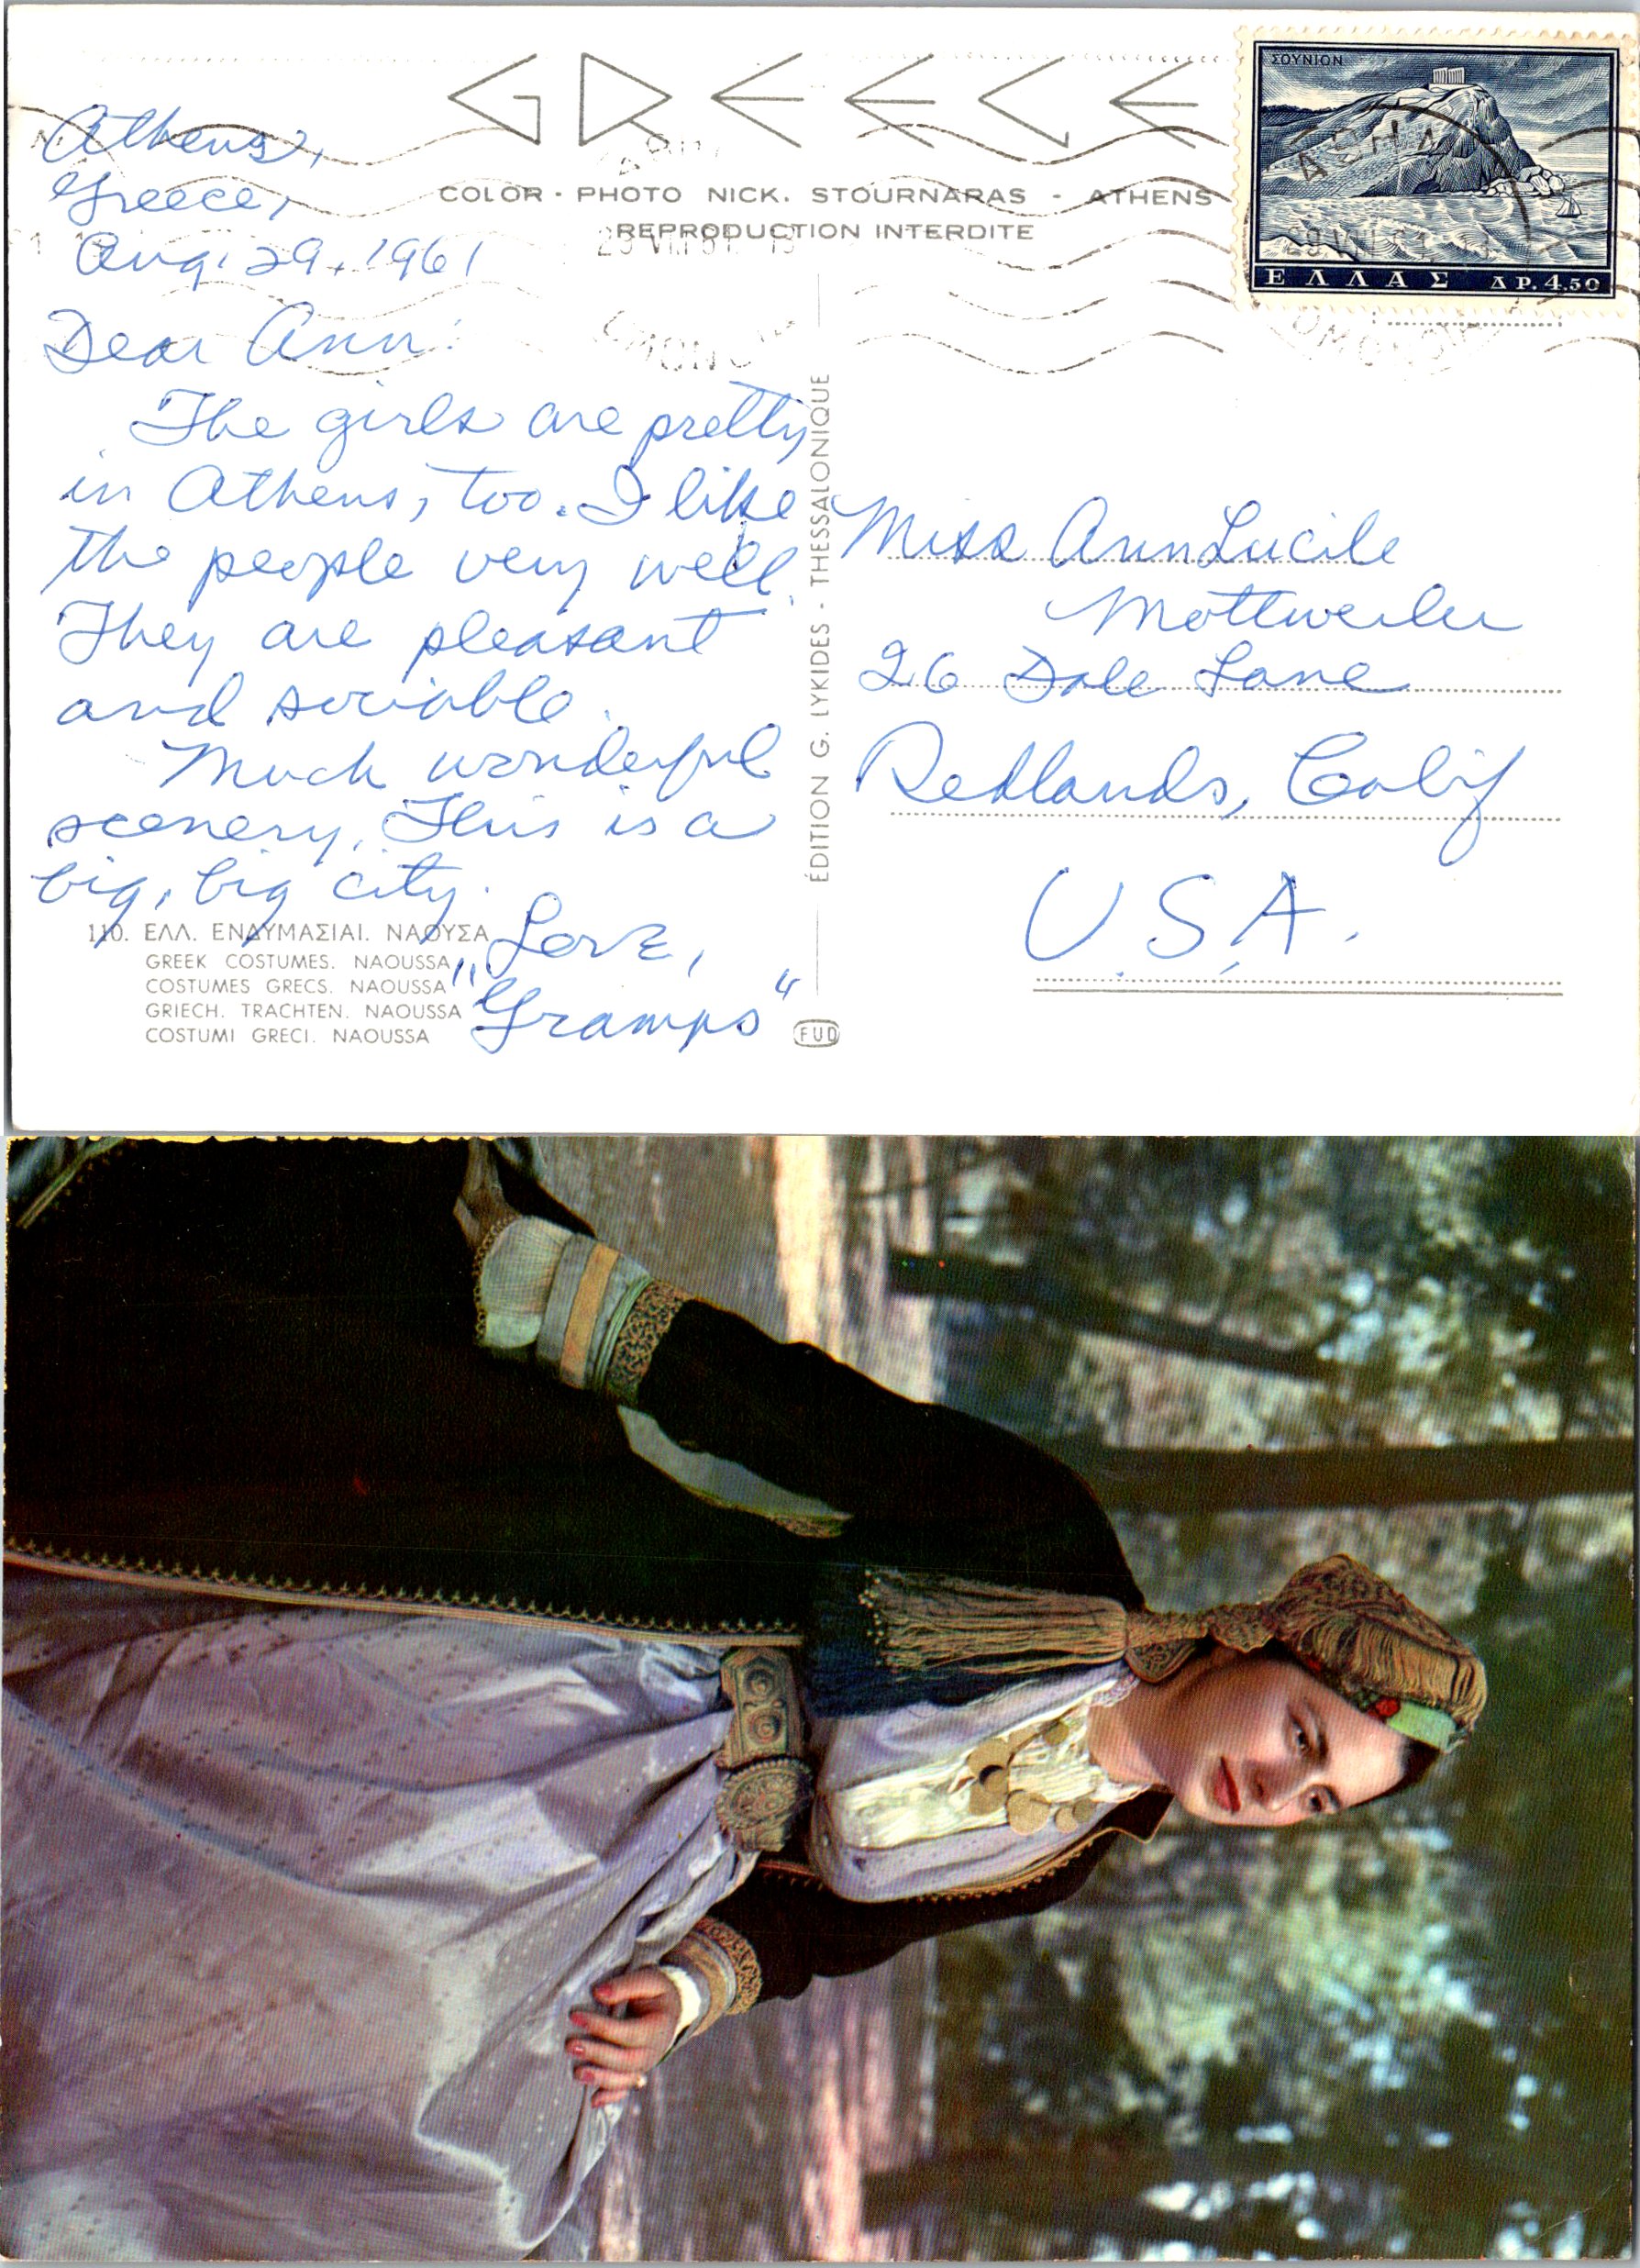 GREECE
COLOR - PHOTO NICK. STOURNARAS - ATHENS
REPRODUCTION INTERDITE
ΣΟΥΝΙΟΝ
ΕΛΛΑΣ ΔΡ. 4.50
Athens,
Greece,
Aug. 29, 1961
Dear Ann:
The girls are pretty
in Athens, too. I like
the people very well.
They are pleasant
and sociable.
Much wonderful
scenery. This is a
big, big city.
Love,
"Gramps"
110. ΕΛΛ. ΕΝΔΥΜΑΣΙΑΙ. ΝΑΟΥΣΑ
GREEK COSTUMES. NAOUSSA
COSTUMES GRECS. NAOUSSA
GRIECH. TRACHTEN. NAOUSSA
COSTUMI GRECI. NAOUSSA
ÉDITION G. LYKIDES - THESSALONIQUE
FUD
Miss Ann Lucile
Mottweiler
26 Dale Lane
Redlands, Calif
U.S.A.